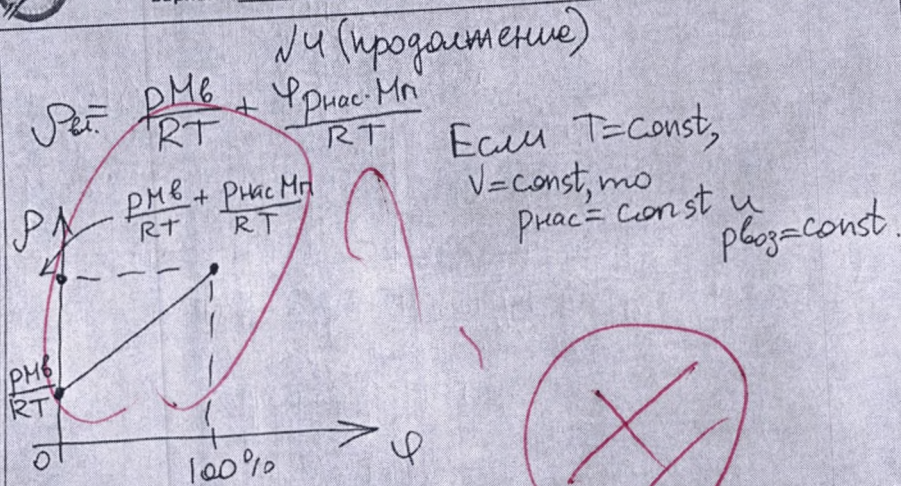 №4 (продолжение)
ρвл.= pMв/RT + φpнас·Mп/RT
Если T=const,
V=const, то
pнас=const и
pвоз=const.
ρ
pMв/RT + pнасMп/RT
pMв/RT
0
100%
φ